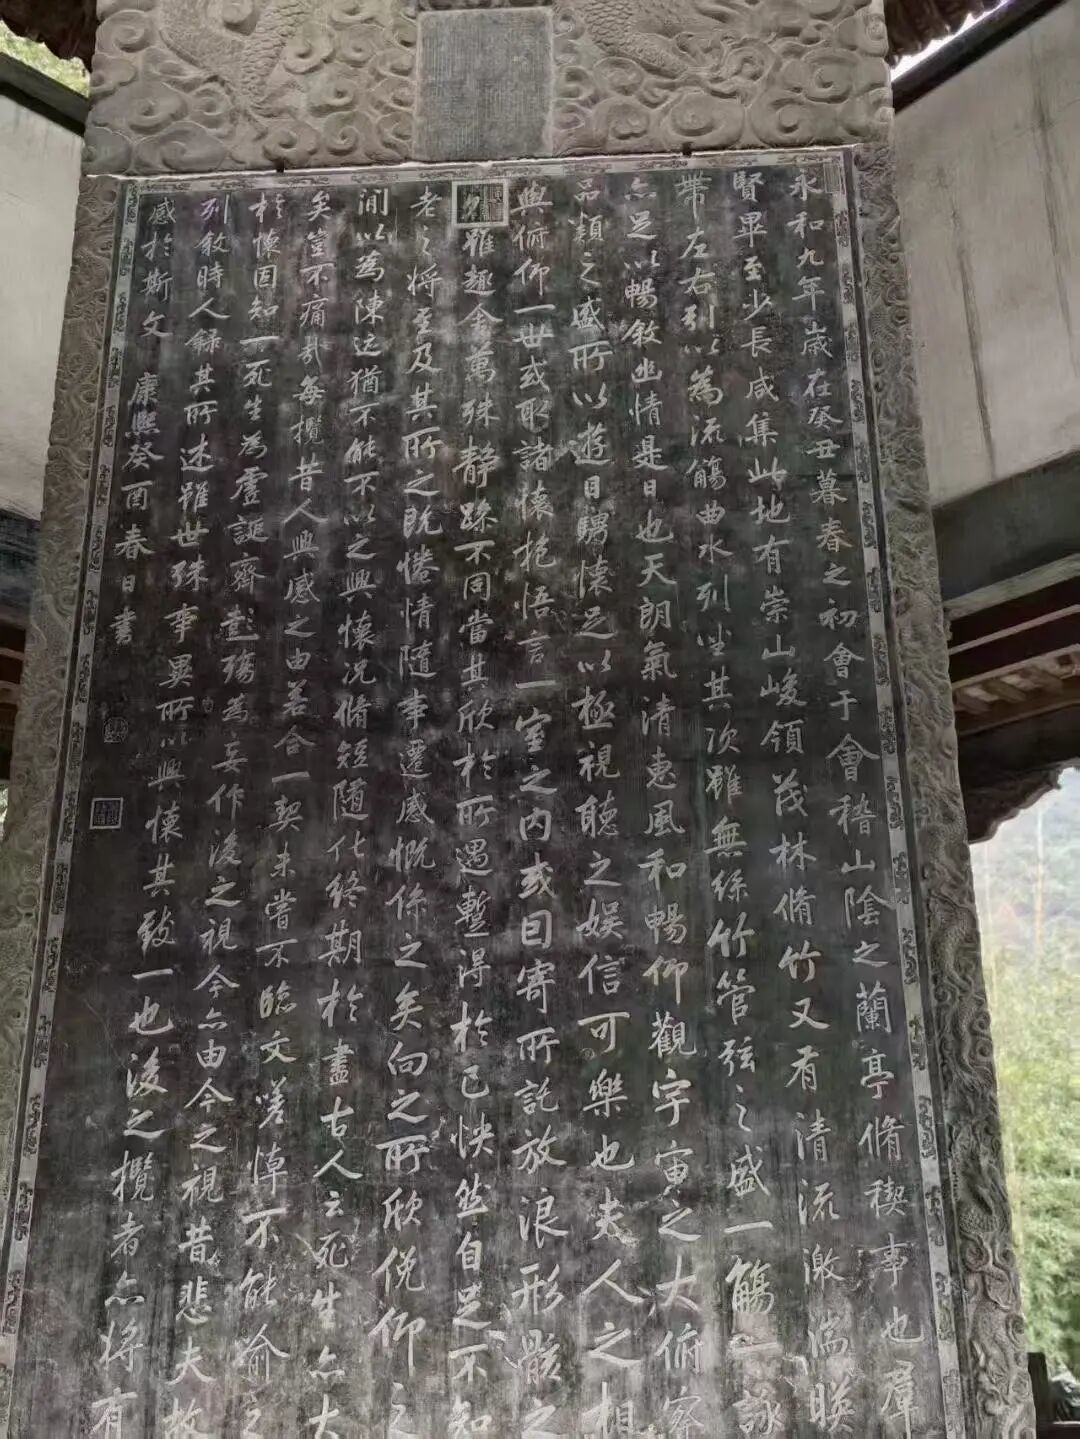 永和九年歲在癸丑暮春之初會于會稽山陰之蘭亭脩稧事也羣
賢畢至少長咸集此地有崇山峻領茂林脩竹又有清流激湍暎
帶左右引以為流觴曲水列坐其次雖無絲竹管弦之盛一觴一詠
亦足以暢敘幽情是日也天朗氣清惠風和暢仰觀宇宙之大俯察
品類之盛所以遊目騁懷足以極視聽之娛信可樂也夫人之相
與俯仰一世或取諸懷抱悟言一室之內或曰寄所託放浪形骸之
雖趣舍萬殊靜躁不同當其欣於所遇暫得於己快然自足不知
老之將至及其所之既惓情隨事遷感慨係之矣向之所欣俛仰之
閒以為陳迹猶不能不以之興懷況脩短隨化終期於盡古人云死生亦大
矣豈不痛哉每攬昔人興感之由若合一契未嘗不臨文嗟悼不能喻之
於懷固知一死生為虛誕齊彭殤為妄作後之視今亦由今之視昔悲夫故
列敘時人錄其所述雖世殊事異所以興懷其致一也後之攬者亦將有
感於斯文 康熙癸酉春日書